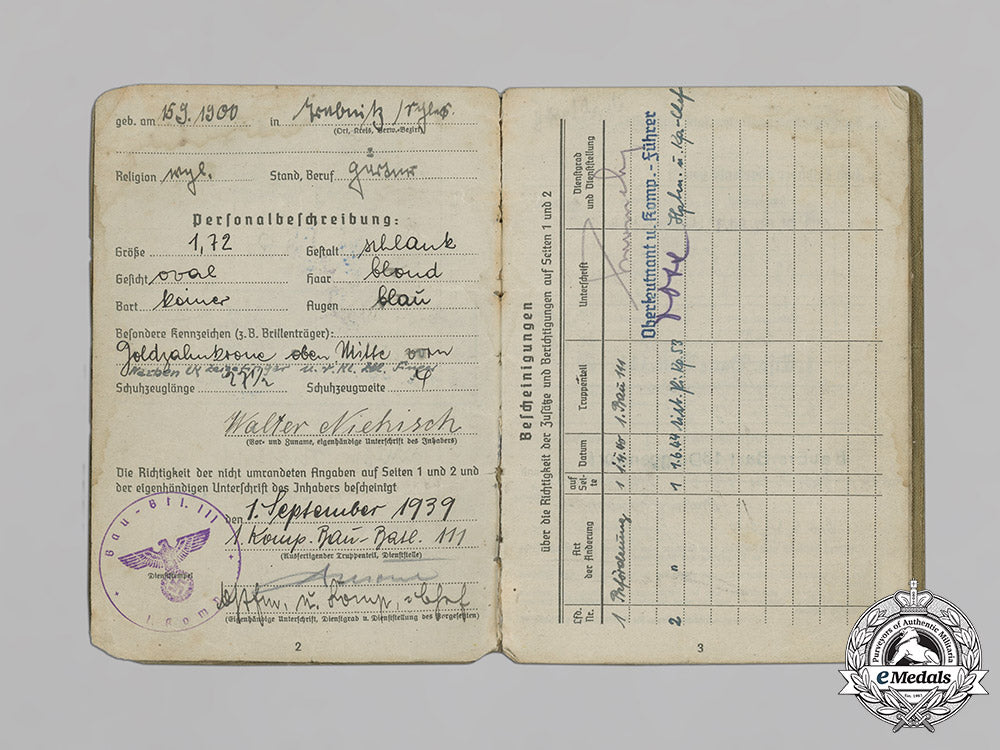 geb. am 15.9.1900 in
(Ort, Kreis, Verw.-Bezirk)
Religion evgl. Stand, Beruf Gärtner
Personalbeschreibung:
Größe 1,72 Gestalt schlank
Gesicht oval Haar blond
Bart keiner Augen blau
Besondere Kennzeichen (z. B. Brillenträger):
Goldzahnkrone oben Mitte vorn
Narben
Schuhzeuglänge 27½ Schuhzeugweite 4
Walter Niekisch
(Vor- und Zuname, eigenhändige Unterschrift des Inhabers)
Die Richtigkeit der nicht umrandeten Angaben auf Seiten 1 und 2 und
der eigenhändigen Unterschrift des Inhabers bescheinigt
den 1. September 1939
1. Komp. Bau-Batl. 111
(Ausfertigender Truppenteil, Dienststelle)
Hptm. u. Komp.-Chef
(Eigenhändige Unterschrift, Dienstgrad u. Dienststellung des Vorgesetzten)
Bau-Btl. 111
Dienststempel
1. Komp.
2
Bescheinigungen
über die Richtigkeit der Zusätze und Berichtigungen auf Seiten 1 und 2
Lfd. Nr. Art der Änderung auf Seite Datum Truppenteil Unterschrift Dienstgrad und Dienststellung
1 Beförderung 1 1. Bau 111
Oberleutnant u. Komp.-Führer
2 " 1 1.6.44 Hptm. u. Kp.-Chef
3
Purveyors of Authentic Militaria
eMedals